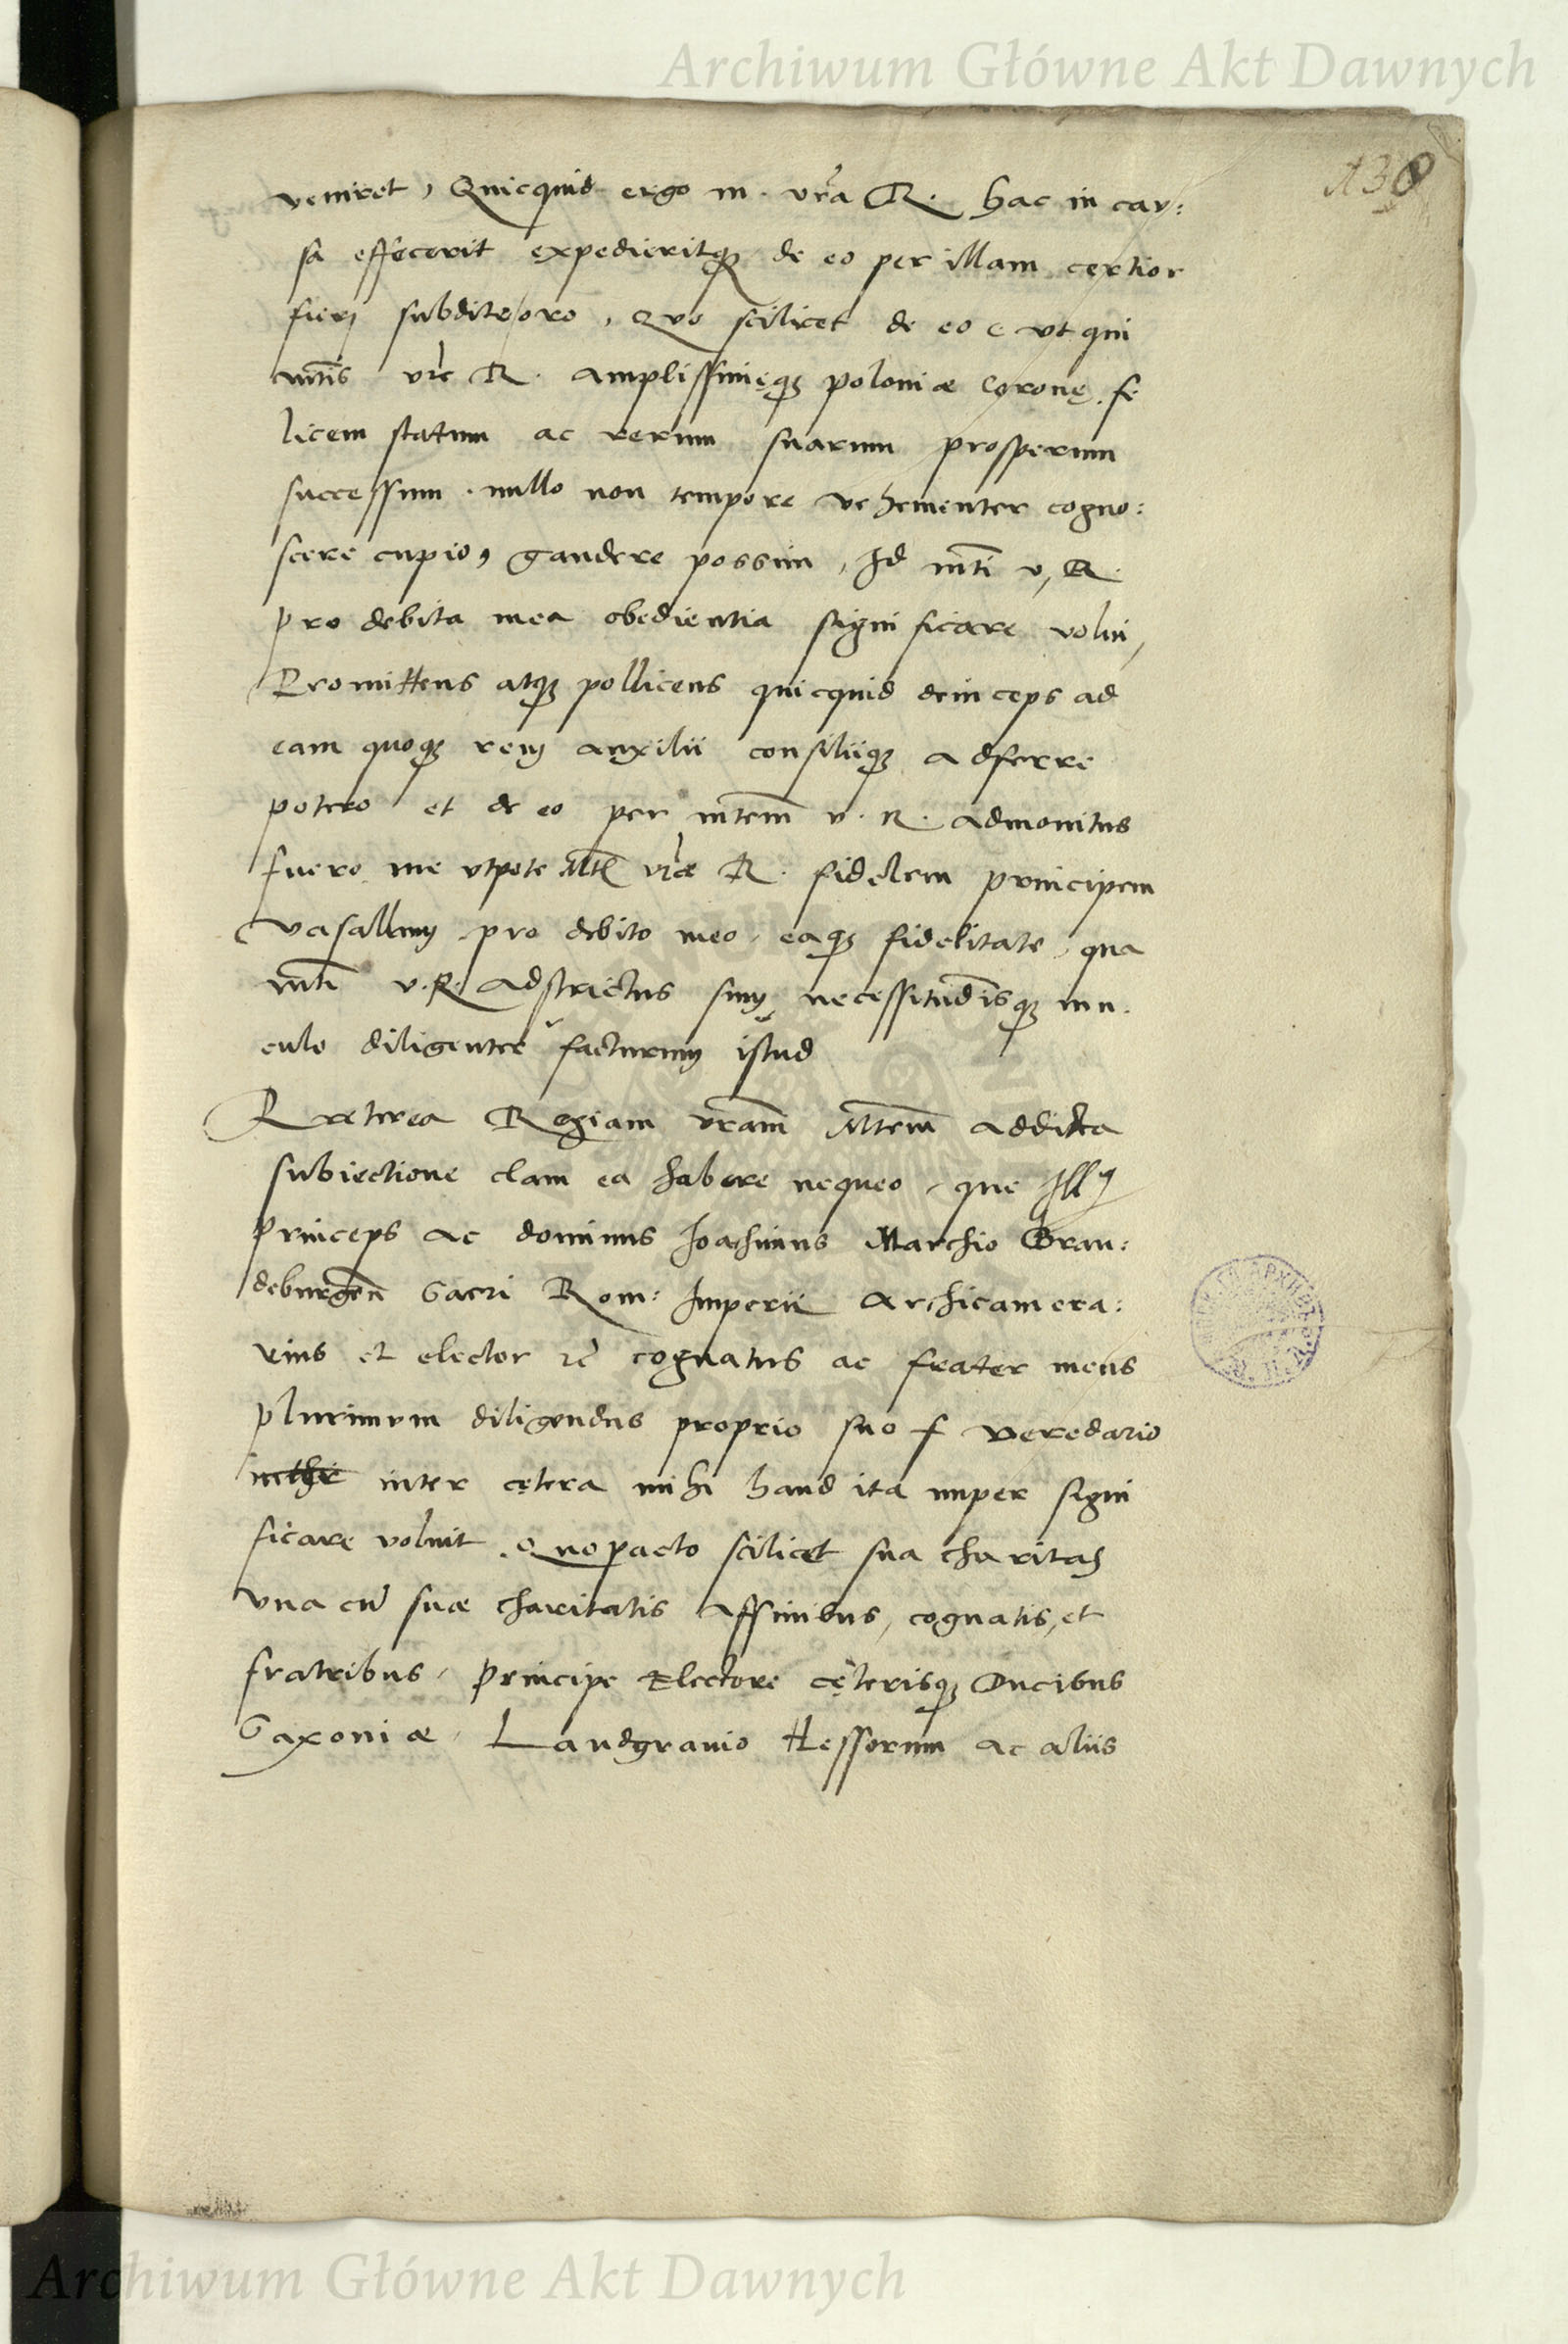 Archiwum Główne Akt Dawnych
138
veniret, Quicquid ergo m. vr̃a R. hac in cau:
sa effecerit expedieritq₃ de eo per illam certior
fierj subdite oro, Quo scilicet de eo c vt qui
mt̃is vr̃e R. amplissimęq₃ poloniæ Coronę fe
licem statum ac rerum suarum prosperum
successum nullo non tempore vehementer cogno:
scere cupio, gaudere possim, Id mt̃i v, R.
pro debita mea obedientia significare volui,
Promittens atq₃ pollicens quicquid deinceps ad
eam quoq₃ rem auxilii consiliiq₃ adferre
potero et de eo per mtem̃ v. R. admonitus
fuero me vtpote Mt̃ vr̃æ R. fidelem principem
vasallum pro debito meo, eaq₃ fidelitate, qua
mt̃i v. R. adstrictus sum necessitudĩsq₃ uin.
culo diligenter facturum istud
Præterea Regiam vram̃ Mtem̃ addicta
subiectione clam ea habere nequeo, que Ill
princeps ac dominus Joachimus Marchio Bran:
deburgeñ Sacri Rom: Imperii Archicamera:
rius et elector rc̃ cognatus ac frater meus
plurimum diligendus proprio suo f veredario
inter cętera mihi haud ita nuper signi
ficare voluit, Quo pacto scilicet sua charitas
vna cũ suæ charitatis Affinibus, cognatis, et
fratribus, Principe Electore cęterisq₃ Ducibus
Saxoniæ, Landgrauio Hessorum ac aliis
Archiwum Główne Akt Dawnych